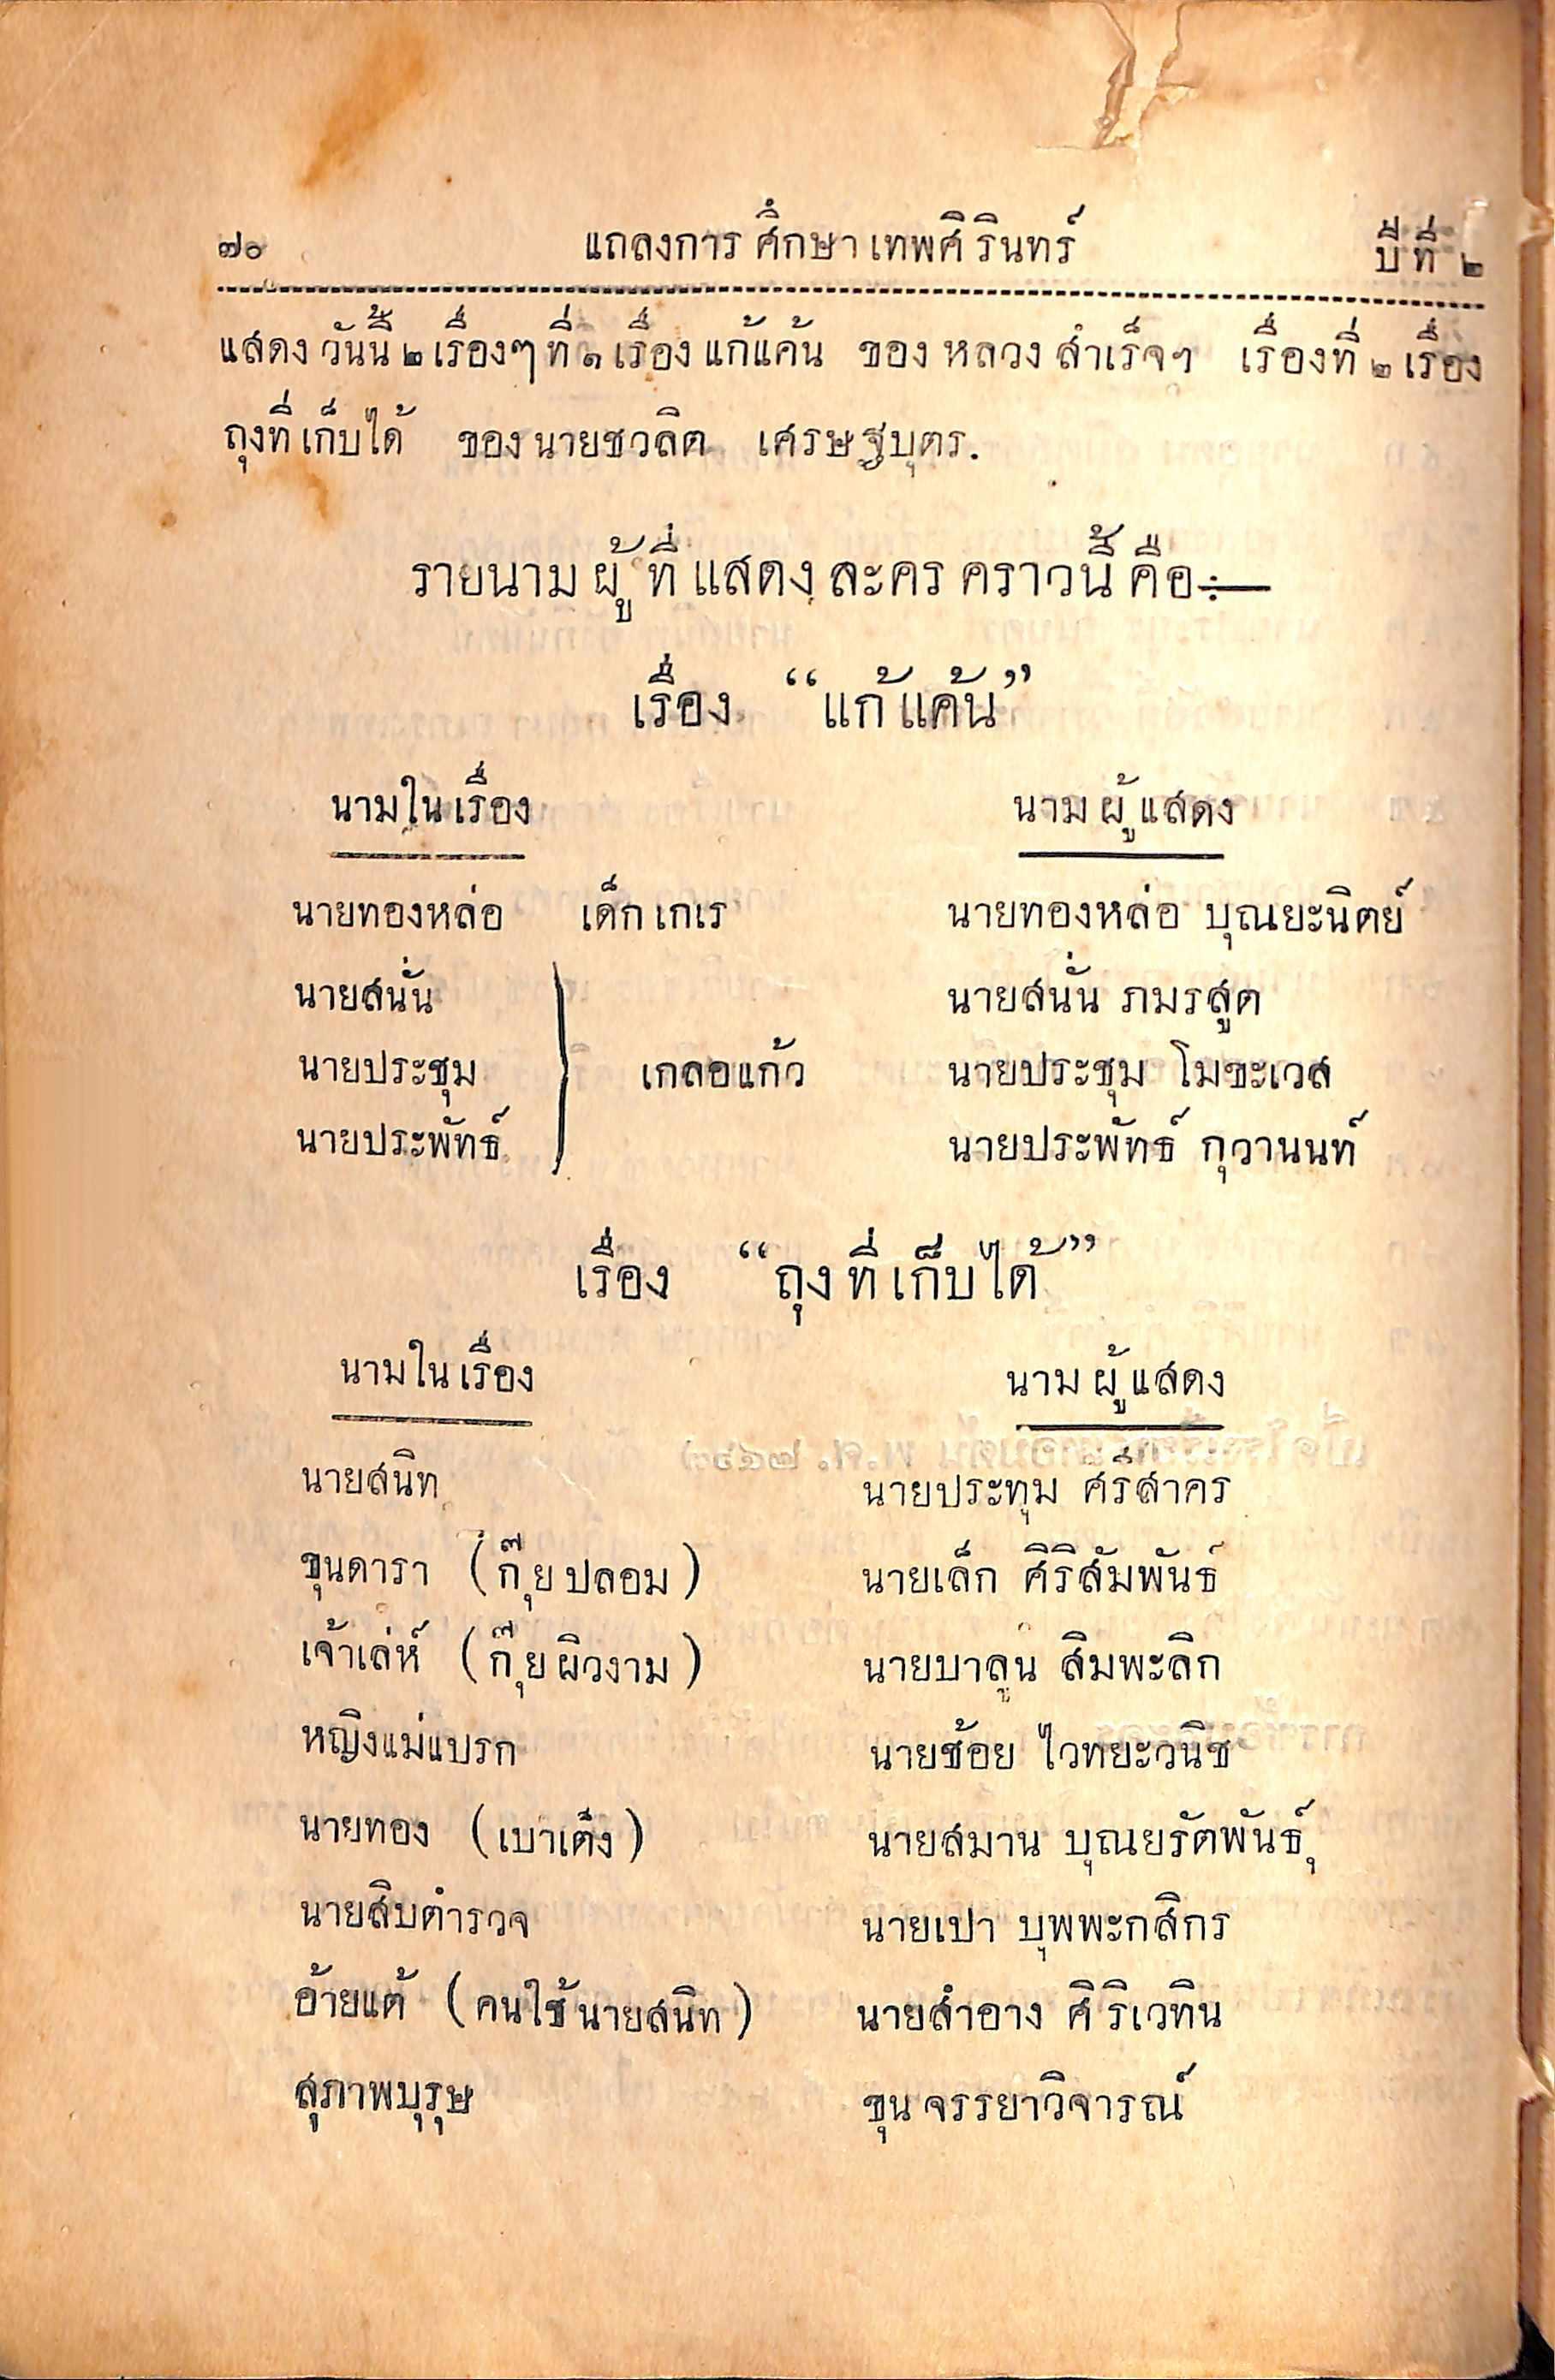 ๗๐ แถลงการศึกษาเทพศิรินทร์ ปีที่ ๒
แสดงวันนี้ ๒ เรื่องๆที่ ๑ เรื่องแก้แค้น ของ หลวงสำเร็จฯ เรื่องที่ ๒ เรื่อง
ถุงที่เก็บได้ ของนายชวลิต เศรษฐบุตร.
รายนามผู้ที่แสดงละครคราวนี้คือ÷—
เรื่อง “แก้แค้น”
นามในเรื่อง นามผู้แสดง
นายทองหล่อ เด็กเกเร นายทองหล่อ บุณยะนิตย์
นายสนั่น นายสนั่น ภมรสูต
นายประชุม } เกลอแก้ว นายประชุม โมฃะเวส
นายประพัทธ์ นายประพัทธ์ กุวานนท์
เรื่อง “ถุงที่เก็บได้”
นามในเรื่อง นามผู้แสดง
นายสนิท นายประทุม ศรีสาคร
ขุนดารา (กุ๊ยปลอม) นายเล็ก ศิริสัมพันธ์
เจ้าเล่ห์ (กุ๊ยผิวงาม) นายบาลูน สิมพะลิก
หญิงแม่แบรก นายช้อย ไวทยะวนิช
นายทอง (เบาเต็ง) นายสมาน บุณยรัตพันธุ์
นายสิบตำรวจ นายเปา บุพพะกสิกร
อ้ายแต้ (คนใช้นายสนิท) นายสำอาง ศิริเวทิน
สุภาพบุรุษ ขุนจรรยาวิจารณ์